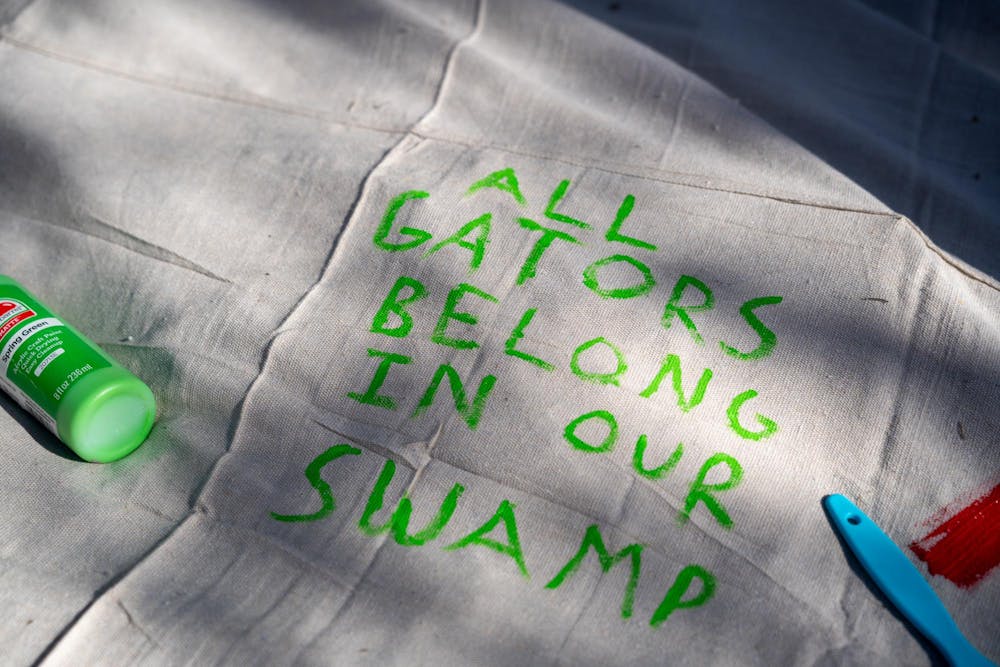 ALL
GATORS
BELONG
IN OUR
SWAMP
MATTE
Spring Green
Acrylic Craft Paint
Quick Drying
Easy Cleanup
8 fl oz 236 ml